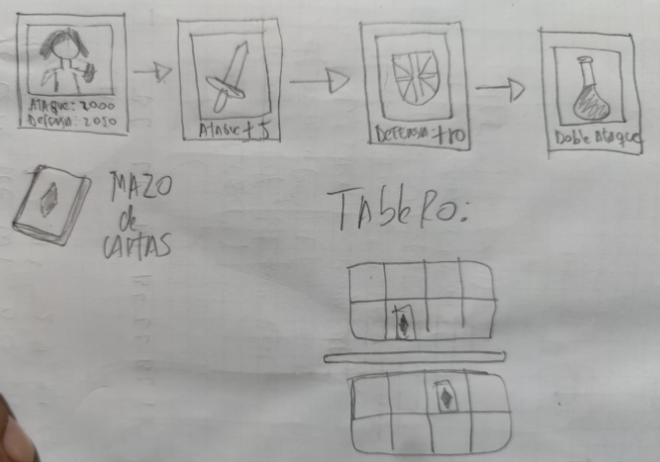 ATAque: 2000
Defensa: 2050
Ataque + 5
Defensa +10
Doble Ataque
MAZO
de
CARTAS
TAbleRO: